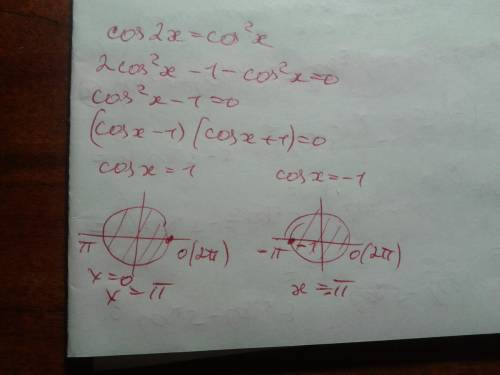 cos2x=cos²x
2cos²x-1-cos²x=0
cos²x-1=0
(cosx-1)(cosx+1)=0
cosx=1 cosx=-1
π 0(2π) -π -1 0(2π)
x=0
x=π x=π